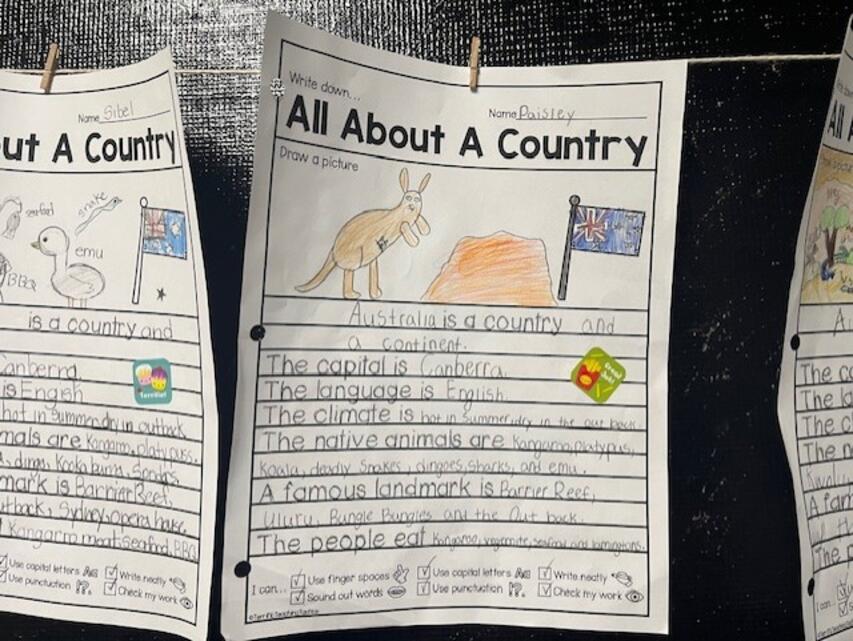 Name Sibel
out A Country
seafood
snake
BBQ
emu
is a country and
Canberra.
is Engish
hot in Summer,dry in outback
mals are Kangaroo, platypuss,
a, dingo, Kooka burra, Spiders,
mark is Barrier Reef,
utback, Sydney opera house,
Kangaroo meat, Seafood, BBQ
Use capital letters Aa
Write neatly
Use punctuation !?.
Check my work
Terrific!
Write down...
Name Paisley
All About A Country
Draw a picture
Australia is a country and
a continent.
The capital is Canberra.
The language is English.
The climate is hot in Summer,dry in the out back.
The native animals are Kangaroo,platypus,
Koala, deadly Snakes, dingoes,sharks, and emu.
A famous landmark is Barrier Reef,
Uluru, Bungle Bungles and the Out back.
The people eat Kangaroo, vegemite, seafood and lamingtons.
Great Job!
I can...
Use finger spaces
Use capital letters Aa
Write neatly
Sound out words
Use punctuation !?.
Check my work
©Terrific Teaching Tactics
All A
A
The ca
The la
The cl
The n
A fam
The p
I can...